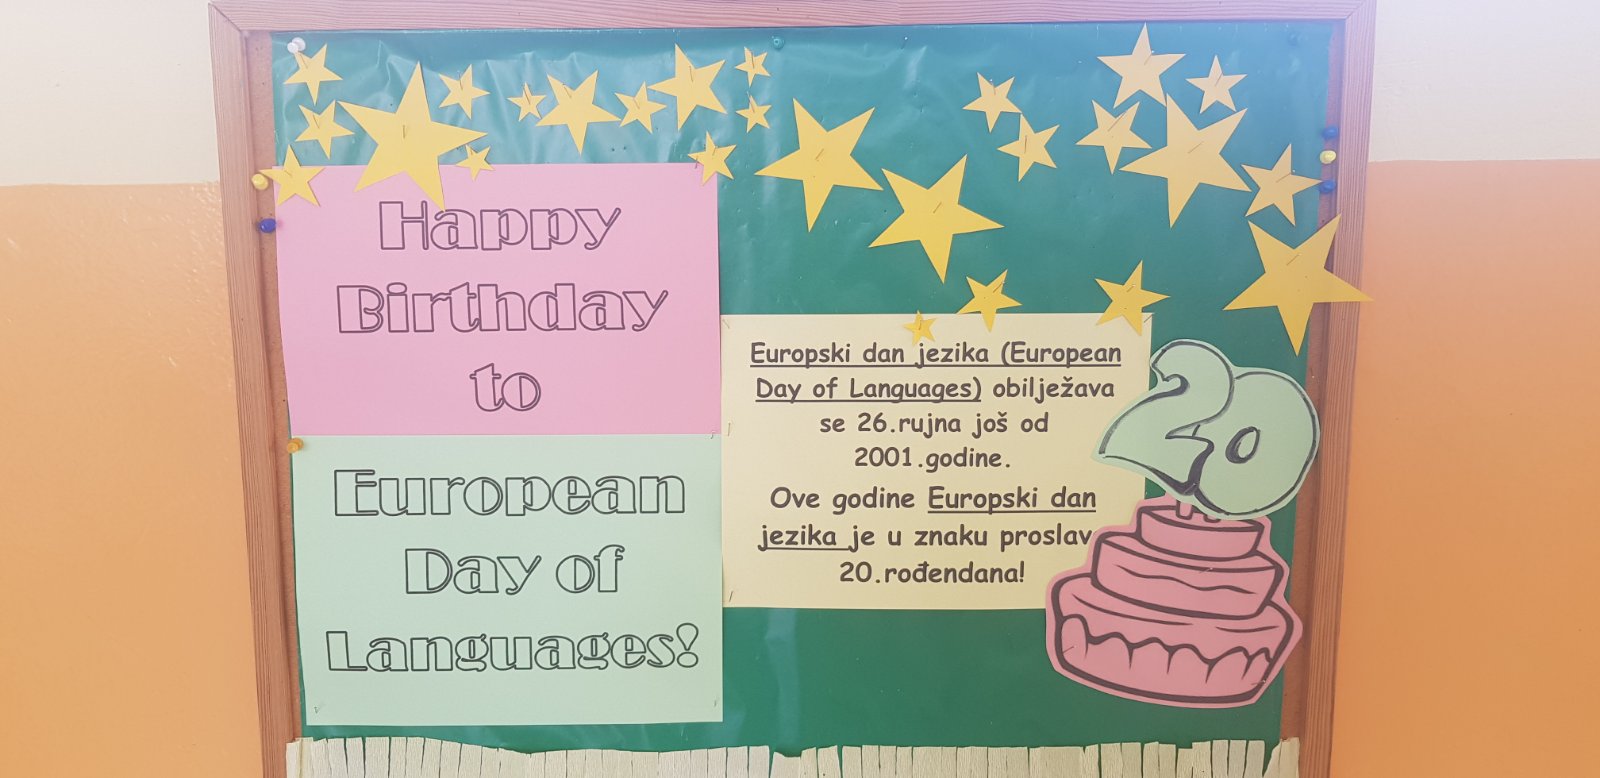 Happy
Birthday
to
European
Day of
Languages!
Europski dan jezika (European
Day of Languages) obilježava
se 26.rujna još od
2001.godine.
Ove godine Europski dan
jezika je u znaku proslav
20.rođendana!
20